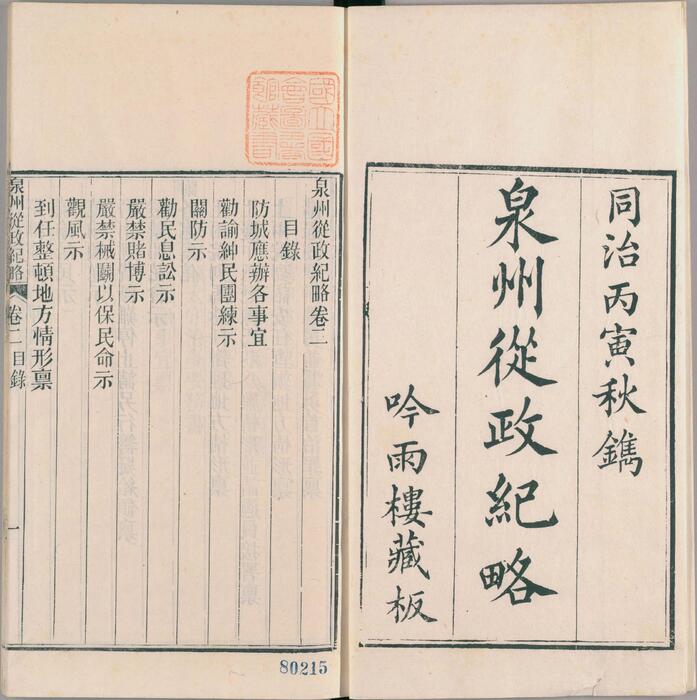 同治丙寅秋鐫
泉州從政紀略
吟雨樓藏板
國立國
會圖書
館藏書
泉州從政紀略卷二
目錄
防城應辦各事宜
勸諭紳民團練示
關防示
勸民息訟示
嚴禁賭博示
嚴禁械鬭以保民命示
觀風示
到任整頓地方情形稟
泉州從政紀略 卷二 目錄 一
80215